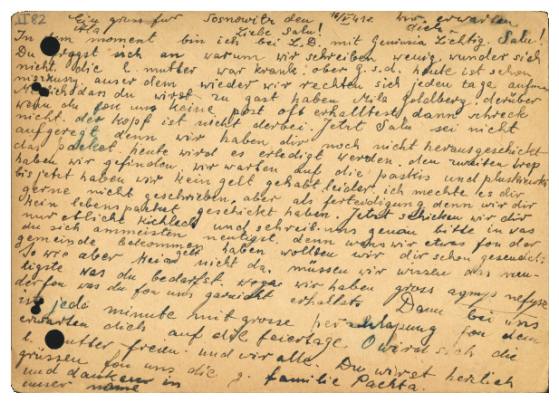 II 82
Ein gruss für Sosnowitz den wir erwarten
Ala Liebe Salu! dich Salu!
In dem moment bin ich bei L.D. mit Geniusia Lichtig,
Du fragst sich an warum wir schreiben wenig, wunder sich
nicht, die l. mutter war krank, ober G.s.d. heute ist schon
auser dem, wieder wir rechten sich jeden tage aufm
dass du wirst zu gast haben Mila Goldberg. derüber
wenn du fon uns keine post oft erhalltest, dann schreck
nicht. der kopf ist nicht derbei. Jetzt Salu sei nicht
aufgeregt denn wir haben dir noch nicht herausgeschickt
das packet. heute wird es erledigt werden. den zweiten brep
haben wir gefinden. wir warten auf die paskis und
bis jetzt haben wir kein gelt gehabt leider. ich mechte es dir
gerne nicht geschrieben, aber als ferteidigung denn wir dir
kein lebens paket geschickt haben. Jetzt schicken wir dir
nur etliche kichlech und schreib uns genau bitte in was
du sich ammeisten neutigst, denn wenn wir etwas fon der
gemeinde bekommen haben wollen wir dir schon gesendet;
So wie aber gelt nicht da, müssen wir wissen das neu-
ligste was du bedarfst. wir haben gross agmys nefyse
derfon was du fon uns garnicht erhallst. Dann bei uns
jede minute mit grosse fon dem
erwarten dich auf die feiertage. O wird sich die
l. mutter freien. und wir alle. Du wirst herzlich
grüssen fon uns die g. familie Pachta.
und danken in
unser name